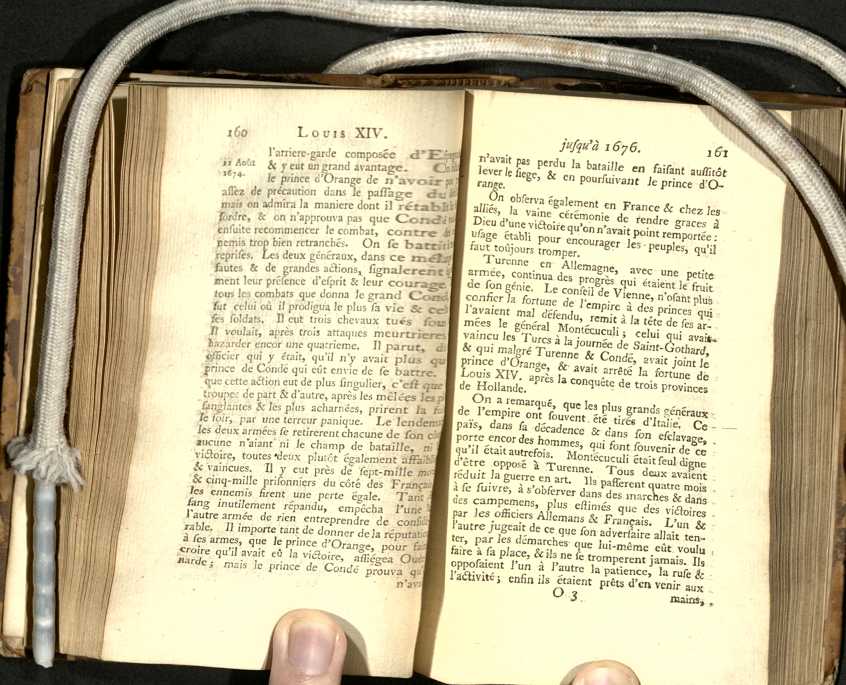 160 Louis XIV.
l'arriere-garde composée
11 Août
1674.
& y eut un grand avantage.
le prince d'Orange de n'avoir
assez de précaution dans le passage du
mais on admira la maniere dont il
sordre, & on n'approuva pas que Condé
ensuite recommencer le combat, contre
nemis trop bien retranchés. On se battit
reprises. Les deux généraux, dans ce
fautes & de grandes actions, signalerent
ment leur présence d'esprit & leur courage.
tous les combats que donna le grand
fut celui où il prodigua le plus sa vie &
ses soldats. Il eut trois chevaux tués sous
Il voulait, après trois attaques meurtrieres
hazarder encor une quatrieme. Il parut,
officier qui y était, qu'il n'y avait plus
prince de Condé qui eût envie de se battre.
que cette action eut de plus singulier, c'est que
troupes de part & d'autre, après les mêlées les
sanglantes & les plus acharnées, prirent la
le soir, par une terreur panique. Le
les deux armées se retirerent chacune de son
aucune n'aiant ni le champ de bataille, ni
victoire, toutes deux plutôt également
& vaincues. Il y eut près de sept-mille
& cinq-mille prisonniers du côté des
les ennemis firent une perte égale. Tant
sang inutilement répandu, empêcha l'une
l'autre armée de rien entreprendre de
rable. Il importe tant de donner de la
à ses armes, que le prince d'Orange, pour
croire qu'il avait eû la victoire, assiégea
narde; mais le prince de Condé prouva
jusqu'à 1676. 161
n'avait pas perdu la bataille en faisant aussitôt
lever le siege, & en poursuivant le prince d'O-
range.
On observa également en France & chez les
alliés, la vaine cérémonie de rendre graces à
Dieu d'une victoire qu'on n'avait point remportée:
usage établi pour encourager les peuples, qu'il
faut toûjours tromper.
Turenne en Allemagne, avec une petite
armée, continua des progrès qui étaient le fruit
de son génie. Le conseil de Vienne, n'osant plus
confier la fortune de l'empire à des princes qui
l'avaient mal défendu, remit à la tête de ses ar-
mées le général Montécuculi; celui qui avait
vaincu les Turcs à la journée de Saint-Gothard,
& qui malgré Turenne & Condé, avait joint le
prince d'Orange, & avait arrêté la fortune de
Louis XIV. après la conquête de trois provinces
de Hollande.
On a remarqué, que les plus grands généraux
de l'empire ont souvent été tirés d'Italie. Ce
païs, dans sa décadence & dans son esclavage,
porte encor des hommes, qui font souvenir de ce
qu'il était autrefois. Montécuculi était seul digne
d'être opposé à Turenne. Tous deux avaient
réduit la guerre en art. Ils passerent quatre mois
à se suivre, à s'observer dans des marches & dans
des campemens, plus estimés que des victoires
par les officiers Allemans & Français. L'un &
l'autre jugeait de ce que son adversaire allait ten-
ter, par les démarches que lui-même eût voulu
faire à sa place, & ils ne se tromperent jamais. Ils
opposaient l'un à l'autre la patience, la ruse &
l'activité; enfin ils étaient prêts d'en venir aux
O 3 mains,